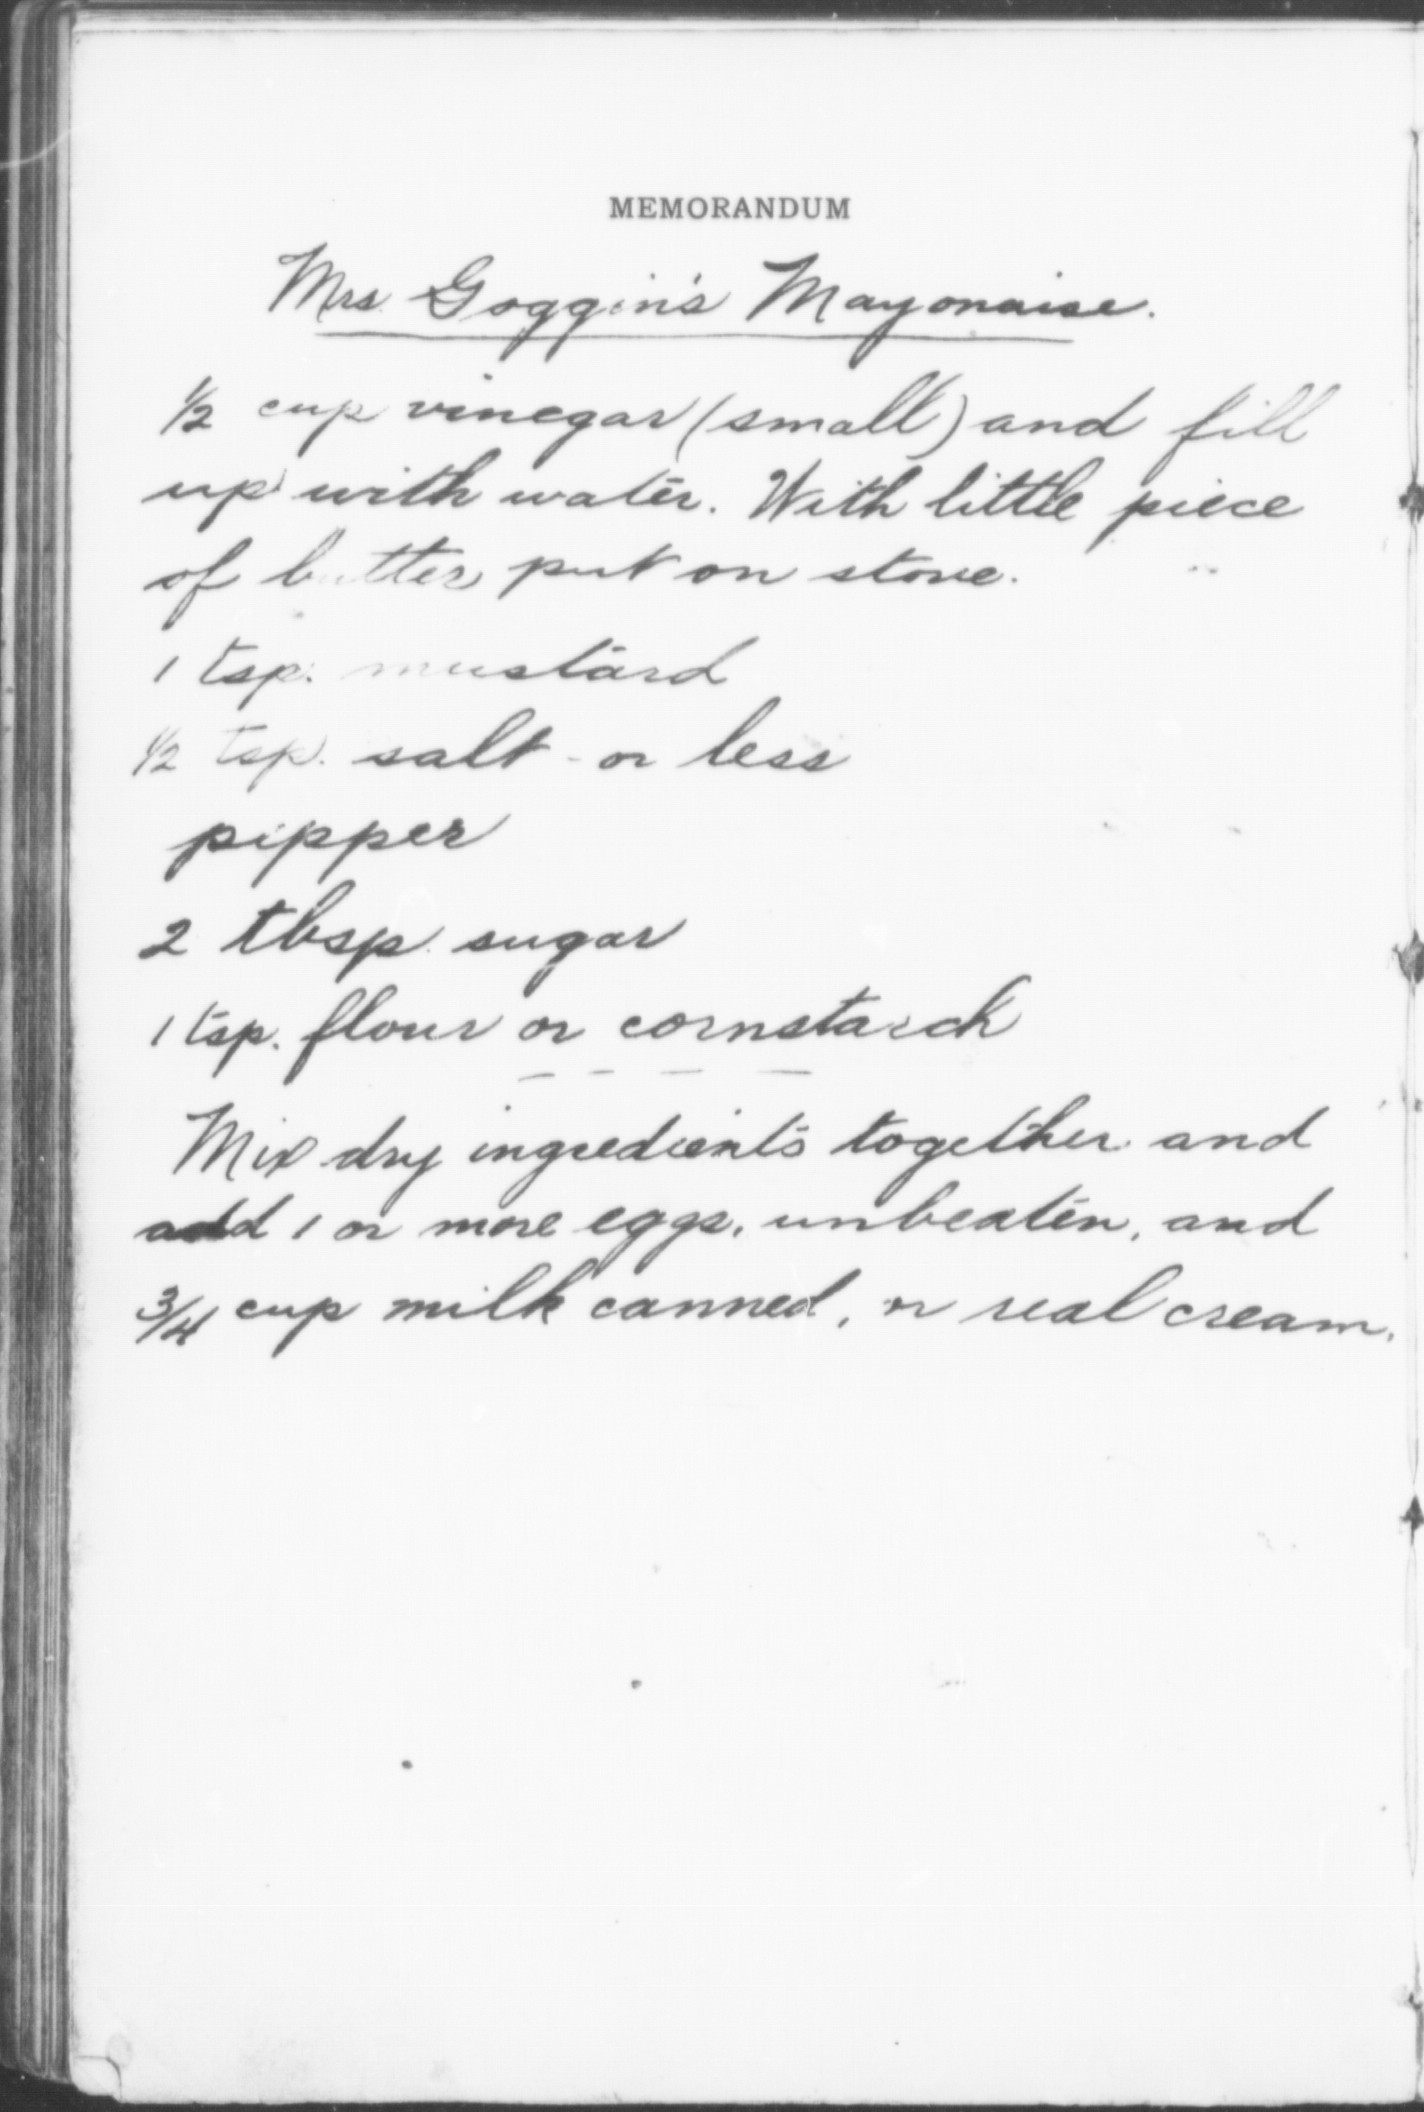 MEMORANDUM
Mrs. Goggin's Mayonaise.
1/2 cup vinegar (small) and fill
up with water. With little piece
of butter put on stove.
1 tsp. mustard
1/2 tsp. salt - or less
pipper
2 tbsp. sugar
1 tsp. flour or cornstarch
Mix dry ingredients together and
add 1 or more eggs, unbeaten, and
3/4 cup milk canned, or real cream.